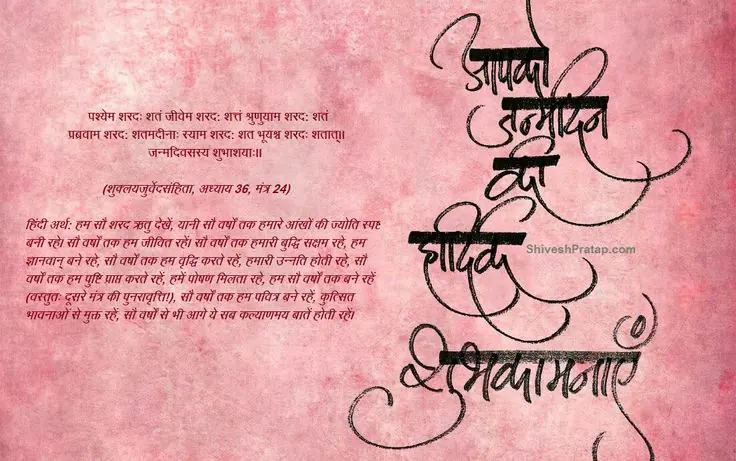 पश्येम शरदः शतं जीवेम शरद: शत्तं श्रुणुयाम शरद: शतं
प्रब्रवाम शरद: शतमदीनाः स्याम शरद: शत भूयश्च शरदः शतात्॥
जन्मदिवसस्य शुभाशयाः॥
(शुक्लयजुर्वेदसंहिता, अध्याय 36, मंत्र 24)
हिंदी अर्थ: हम सौ शरद ऋतु देखें, यानी सौ वर्षों तक हमारे आंखों की ज्योति स्पष्ट
बनी रहे। सौ वर्षों तक हम जीवित रहें। सौ वर्षों तक हमारी बुद्धि सक्षम रहे, हम
ज्ञानवान् बने रहे, सौ वर्षों तक हम वृद्धि करते रहें, हमारी उन्नति होती रहे, सौ
वर्षों तक हम पुष्टि प्राप्त करते रहें, हमें पोषण मिलता रहे, हम सौ वर्षों तक बने रहें
(वस्तुतः दूसरे मंत्र की पुनरावृत्ति!), सौ वर्षों तक हम पवित्र बने रहें, कुत्सित
भावनाओं से मुक्त रहें, सौ वर्षों से भी आगे ये सब कल्याणमय बातें होती रहें।
आपको
जन्मदिन
की
हार्दिक
ShiveshPratap.com
शुभकामनाएँ